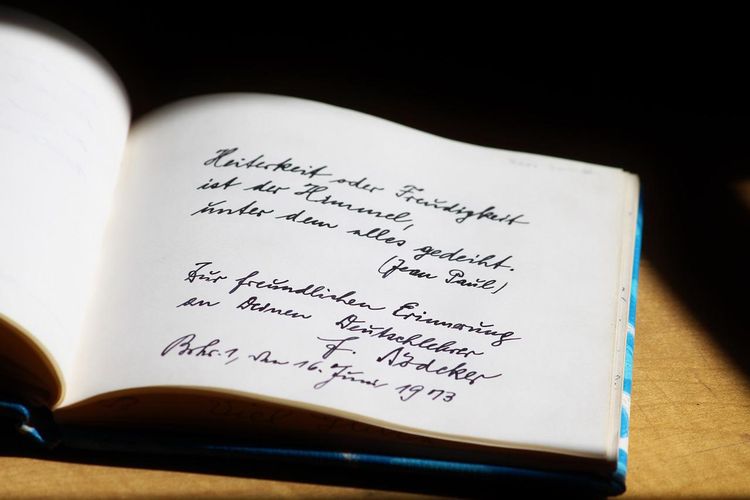 Heiterkeit oder Freudigkeit
ist der Himmel,
unter dem alles gedeiht.
(Jean Paul)
Zur freundlichen Erinnerung
an Deinen Deutschlehrer
F. Södeker
den 16. Juni 1973